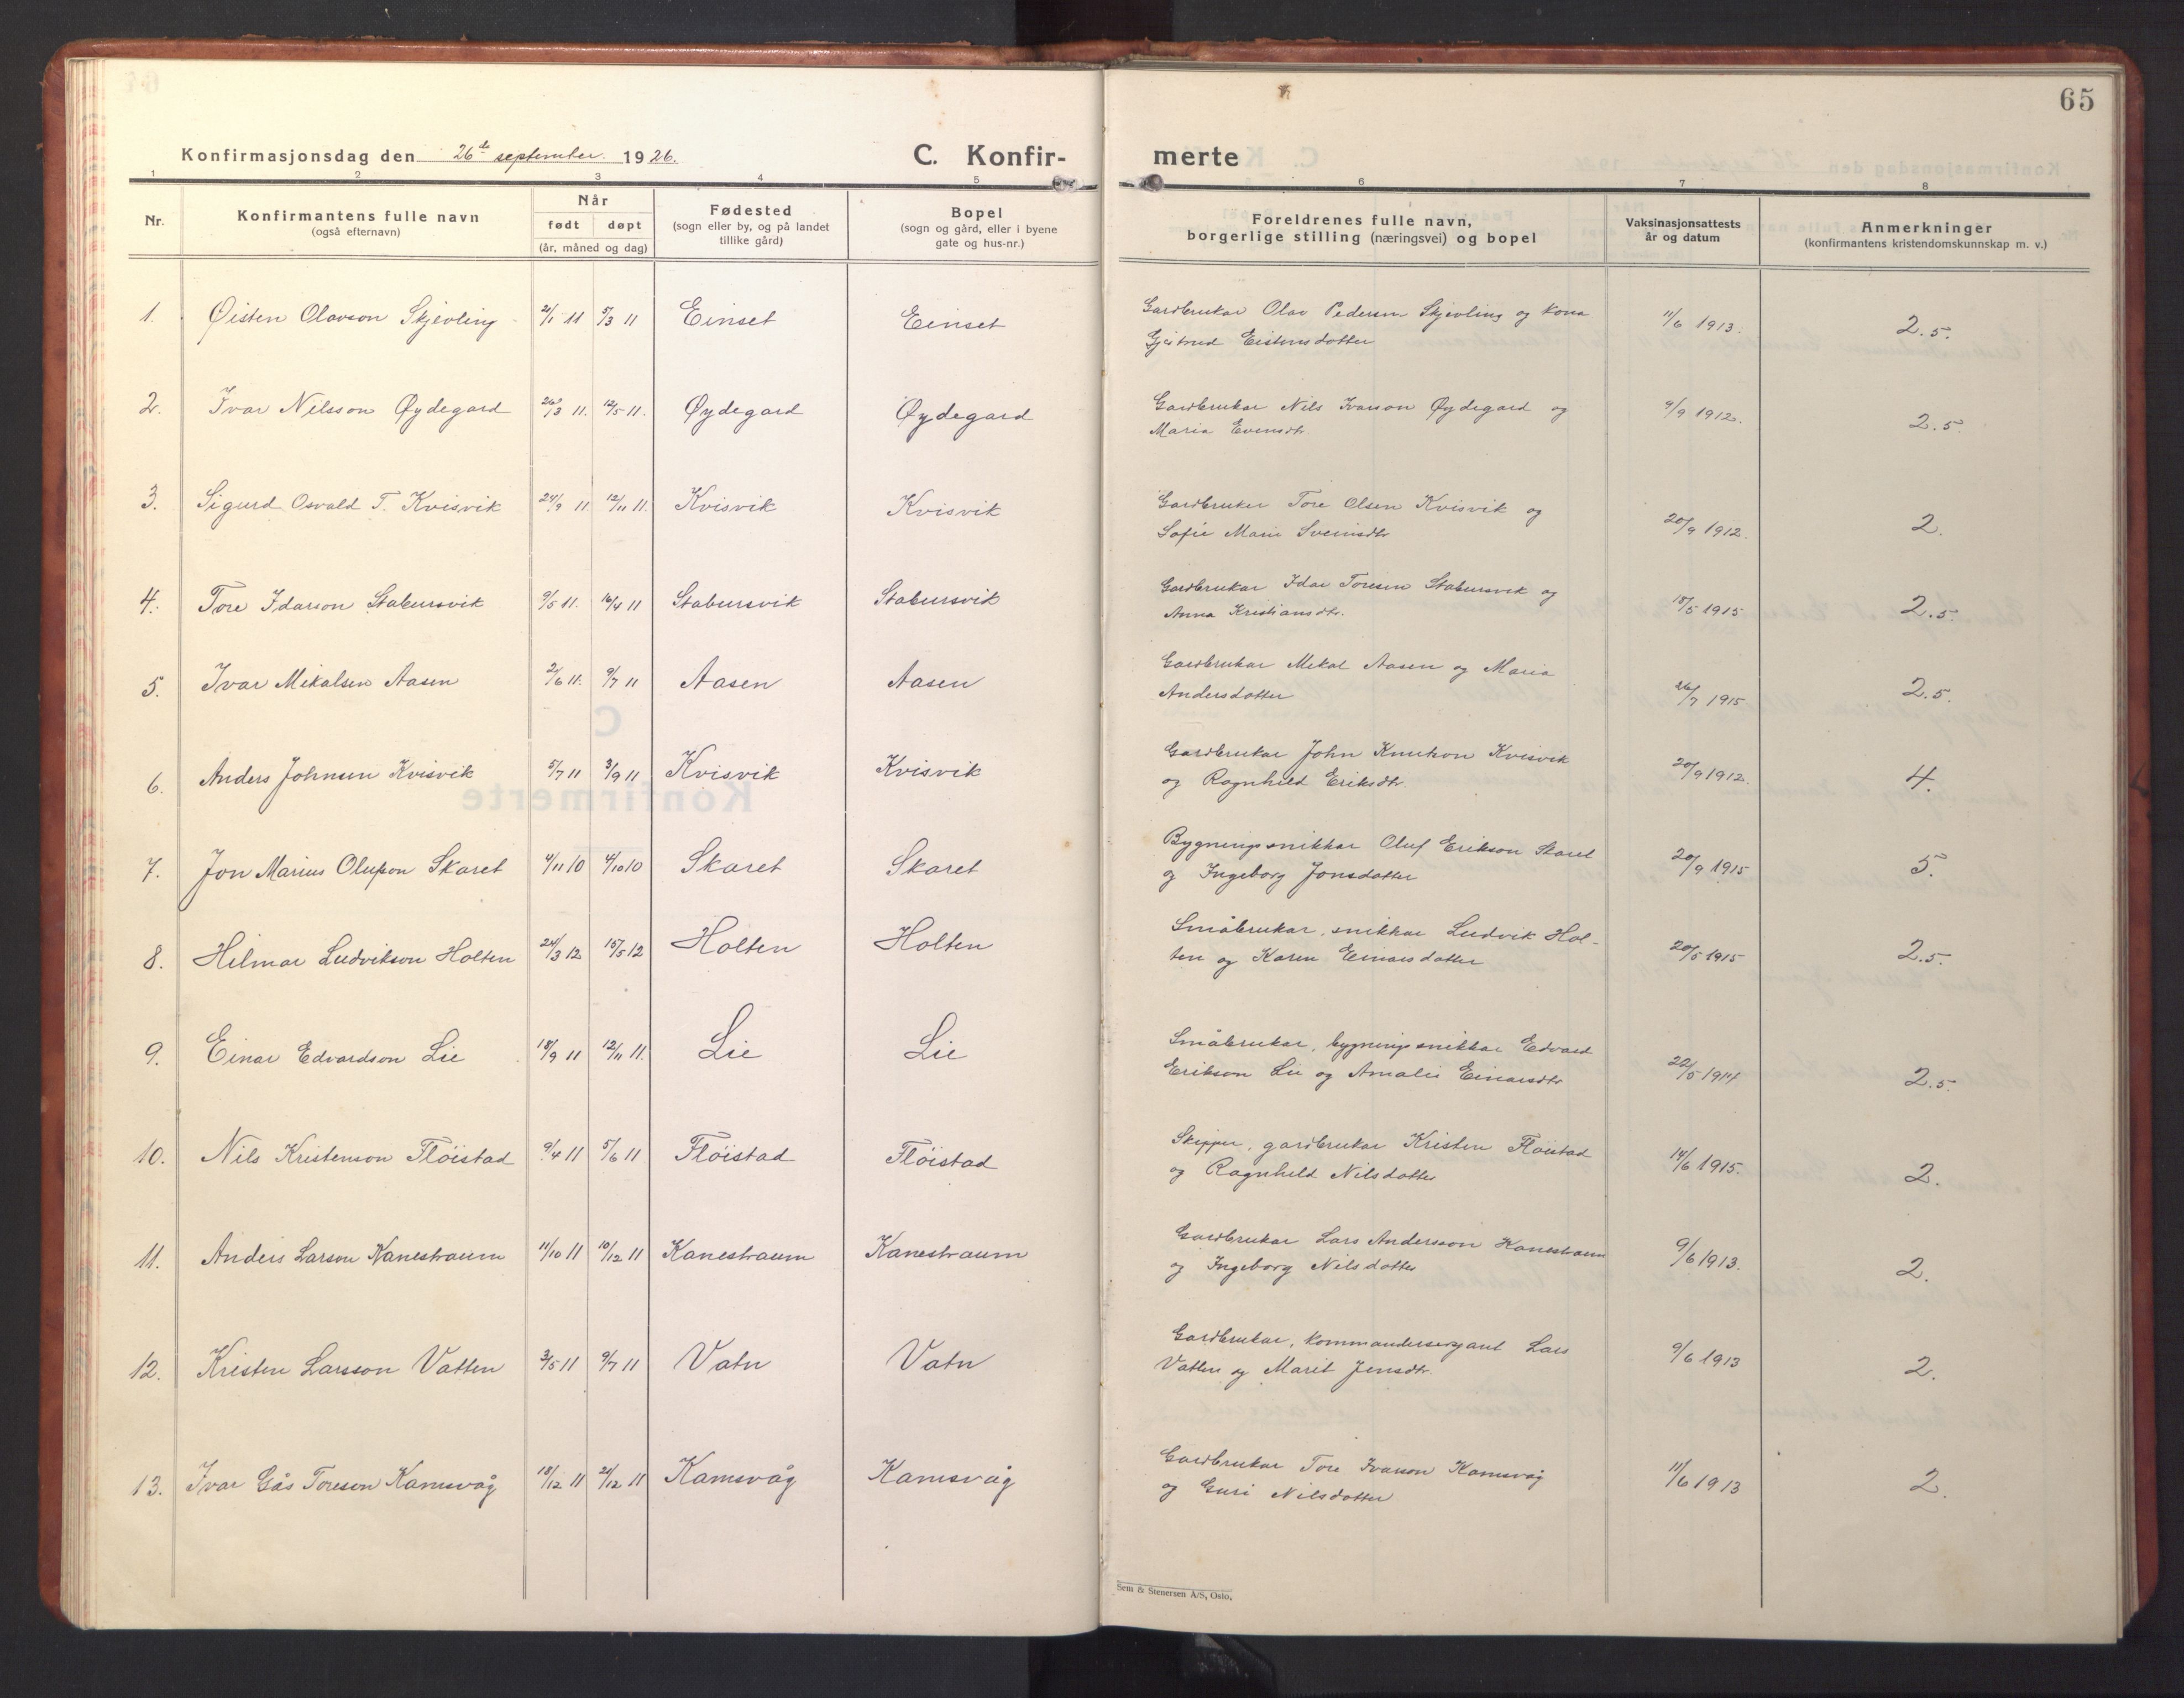 65
Konfirmasjonsdag den 26de september. 1926.
C. Konfir-
merte
1 2 3 4 5 6 7 8
Nr.
Konfirmantens fulle navn
(også efternavn)
Når
født døpt
(år, måned og dag)
Fødested
(sogn eller by, og på landet
tillike gård)
Bopel
(sogn og gård, eller i byene
gate og hus-nr.)
Foreldrenes fulle navn,
borgerlige stilling (næringsvei) og bopel
Vaksinasjonsattests
år og datum
Anmerkninger
(konfirmantens kristendomskunnskap m. v.)
1. Øisten Olavson Skjevling 2/1 11 5/3 11 Einset Einset Gardbrukar Olav Pedersen Skjevling og kona 11/6 1913. 2.5.
Gjertrud Eistensdotter
2. Ivar Nilsson Øydegard 26/3 11. 12/5 11. Øydegard Øydegard Gardbrukar Nils Ivarson Øydegard og 9/9 1912. 2.5.
Maria Evensdtr
3. Sigurd Osvald T. Kvisvik 24/9 11 12/11 11. Kvisvik Kvisvik Gardbruker Tore Olsen Kvisvik og 20/9 1912. 2.
Sofie Marie Sveinsdtr
4. Tore Idarson Stabursvik 9/5 11. 16/4 11 Stabursvik Stabursvik Gardbrukar Idar Toresen Stabursvik og 18/5 1915 2.5.
Anna Kristiansdtr.
5. Ivar Mikalsen Aasen 2/6 11. 9/7 11 Aasen Aasen Gardbrukar Mikal Aasen og Maria 26/7 1915 2.5.
Andersdotter
6. Anders Johnsen Kvisvik 5/7 11 3/9 11 Kvisvik Kvisvik Gardbrukar John Knutson Kvisvik 20/9 1912. 4.
og Ragnhild Eriksdtr.
7. Jon Marius Olufson Skaret 4/11 10 4/10 10 Skaret Skaret Bygningssnikkar Oluf Erikson Skaret 20/9 1915 5.
og Ingeborg Jonsdotter
8. Hilmar Ludvikson Holten 24/3 12 15/5 12 Holten Holten Småbrukar, snikkar Ludvik Hol- 20/5 1915 2.5.
ten og Karen Einarsdotter
9. Einar Edvardson Lie 18/9 11 12/11 11. Lie Lie Småbrukar, bygningssnikkar Edvard 22/5 1914 2.5.
Erikson Lie og Amalie Einarsdtr
10. Nils Kristenson Flöistad 9/4 11 5/6 11 Flöistad Flöistad Skipper, gardbrukar Kristen Flöistad 14/6 1915. 2.
og Ragnhild Nilsdotter
11. Anders Larson Kanestraum 11/10 11 10/12 11 Kanestraum Kanestraum Gardbrukar Lars Andersson Kanestraum 9/6 1913. 2.
og Ingeborg Nilsdotter
12. Kristen Larsson Vatten 3/5 11 9/7 11 Vatn Vatn Gardbrukar, kommandersergant Lars 9/6 1913 2.
Vatten og Marit Jensdtr.
13. Ivar Gås Toreson Kamsvåg 18/12 11 21/12 11 Kamsvåg Kamsvåg Gardbrukar Tore Ivarson Kamsvåg 11/6 1913 2.
og Guri Nilsdotter
Sem & Stenersen A/S, Oslo.